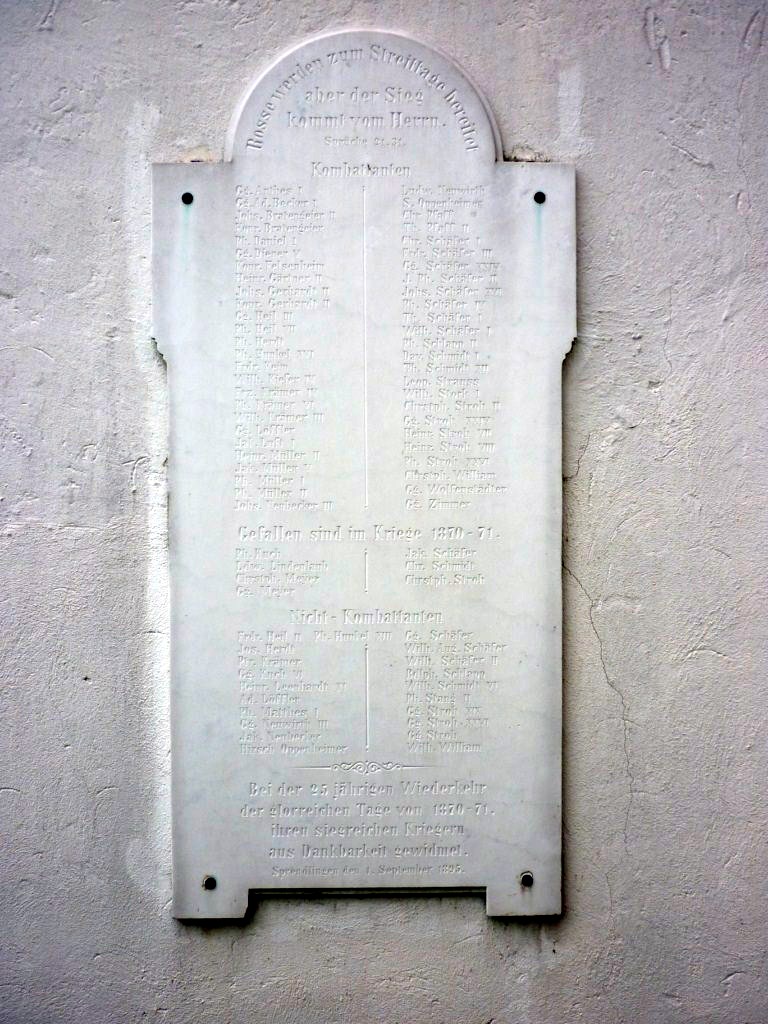 Rosse werden zum Streittage bereitet
aber der Sieg
kommt vom Herrn.
Sprüche 21. 31.
Kombattanten
Gg. Anthes I
Gg. Ad. Becker I
Johs. Bratengeier II
Konr. Bratengeier
Ph. Daniel I
Gg. Diener V
Konr. Felsenheim
Heinr. Gärtner II
Johs. Gerhardt II
Konr. Gerhardt II
Gg. Heil III
Ph. Heil VII
Ph. Herdt
Ph. Hunkel XVI
Frdr. Keim
Wilh. Kiefer IV
Frz. Krämer II
Ph. Krämer VI
Wilh. Krämer III
Gg. Löffler
Jak. Luft I
Heinr. Müller II
Jak. Müller V
Ph. Müller I
Ph. Müller II
Johs. Neubecker III
Ludw. Neuwirth
S. Oppenheimer
Chr. Pfaff
Th. Pfaff II
Chr. Schäfer I
Frdr. Schäfer III
Gg. Schäfer XXIV
J. Ph. Schäfer II
Johs. Schäfer XVI
Ph. Schäfer IV
Th. Schäfer I
Wilh. Schäfer I
Ph. Schlapp II
Dav. Schmidt I
Ph. Schmidt XII
Leop. Strauss
Wilh. Stork I
Christph. Stroh II
Gg. Stroh XXIV
Heinr. Stroh VII
Heinr. Stroh VIII
Ph. Stroh XXVI
Christph. William
Gg. Wolfenstädter
Gg. Zimmer
Gefallen sind im Kriege 1870-71.
Ph. Kuch
Ldw. Lindenlaub
Christph. Meyer
Gg. Meyer
Jak. Schäfer
Chr. Schmidt
Christph. Stroh
Nicht-Kombattanten
Frdr. Heil II Ph. Hunkel XII
Jos. Herdt
Ptr. Krämer
Gg. Kuch VI
Heinr. Leonhardt VI
Ad. Löffler
Ph. Matthes I
Gg. Neuwirth III
Jak. Neubecker
Hirsch Oppenheimer
Gg. Schäfer
Wilh. Aug. Schäfer
Wilh. Schäfer II
Rdlph. Schlapp
Wilh. Schmidt VI
Ph. Stang II
Gg. Stroh XX
Gg. Stroh XXVI
Gg. Stroh
Wilh. William
Bei der 25 jährigen Wiederkehr
der glorreichen Tage von 1870-71.
ihren siegreichen Kriegern
aus Dankbarkeit gewidmet.
Sprendlingen den 1. September 1895.